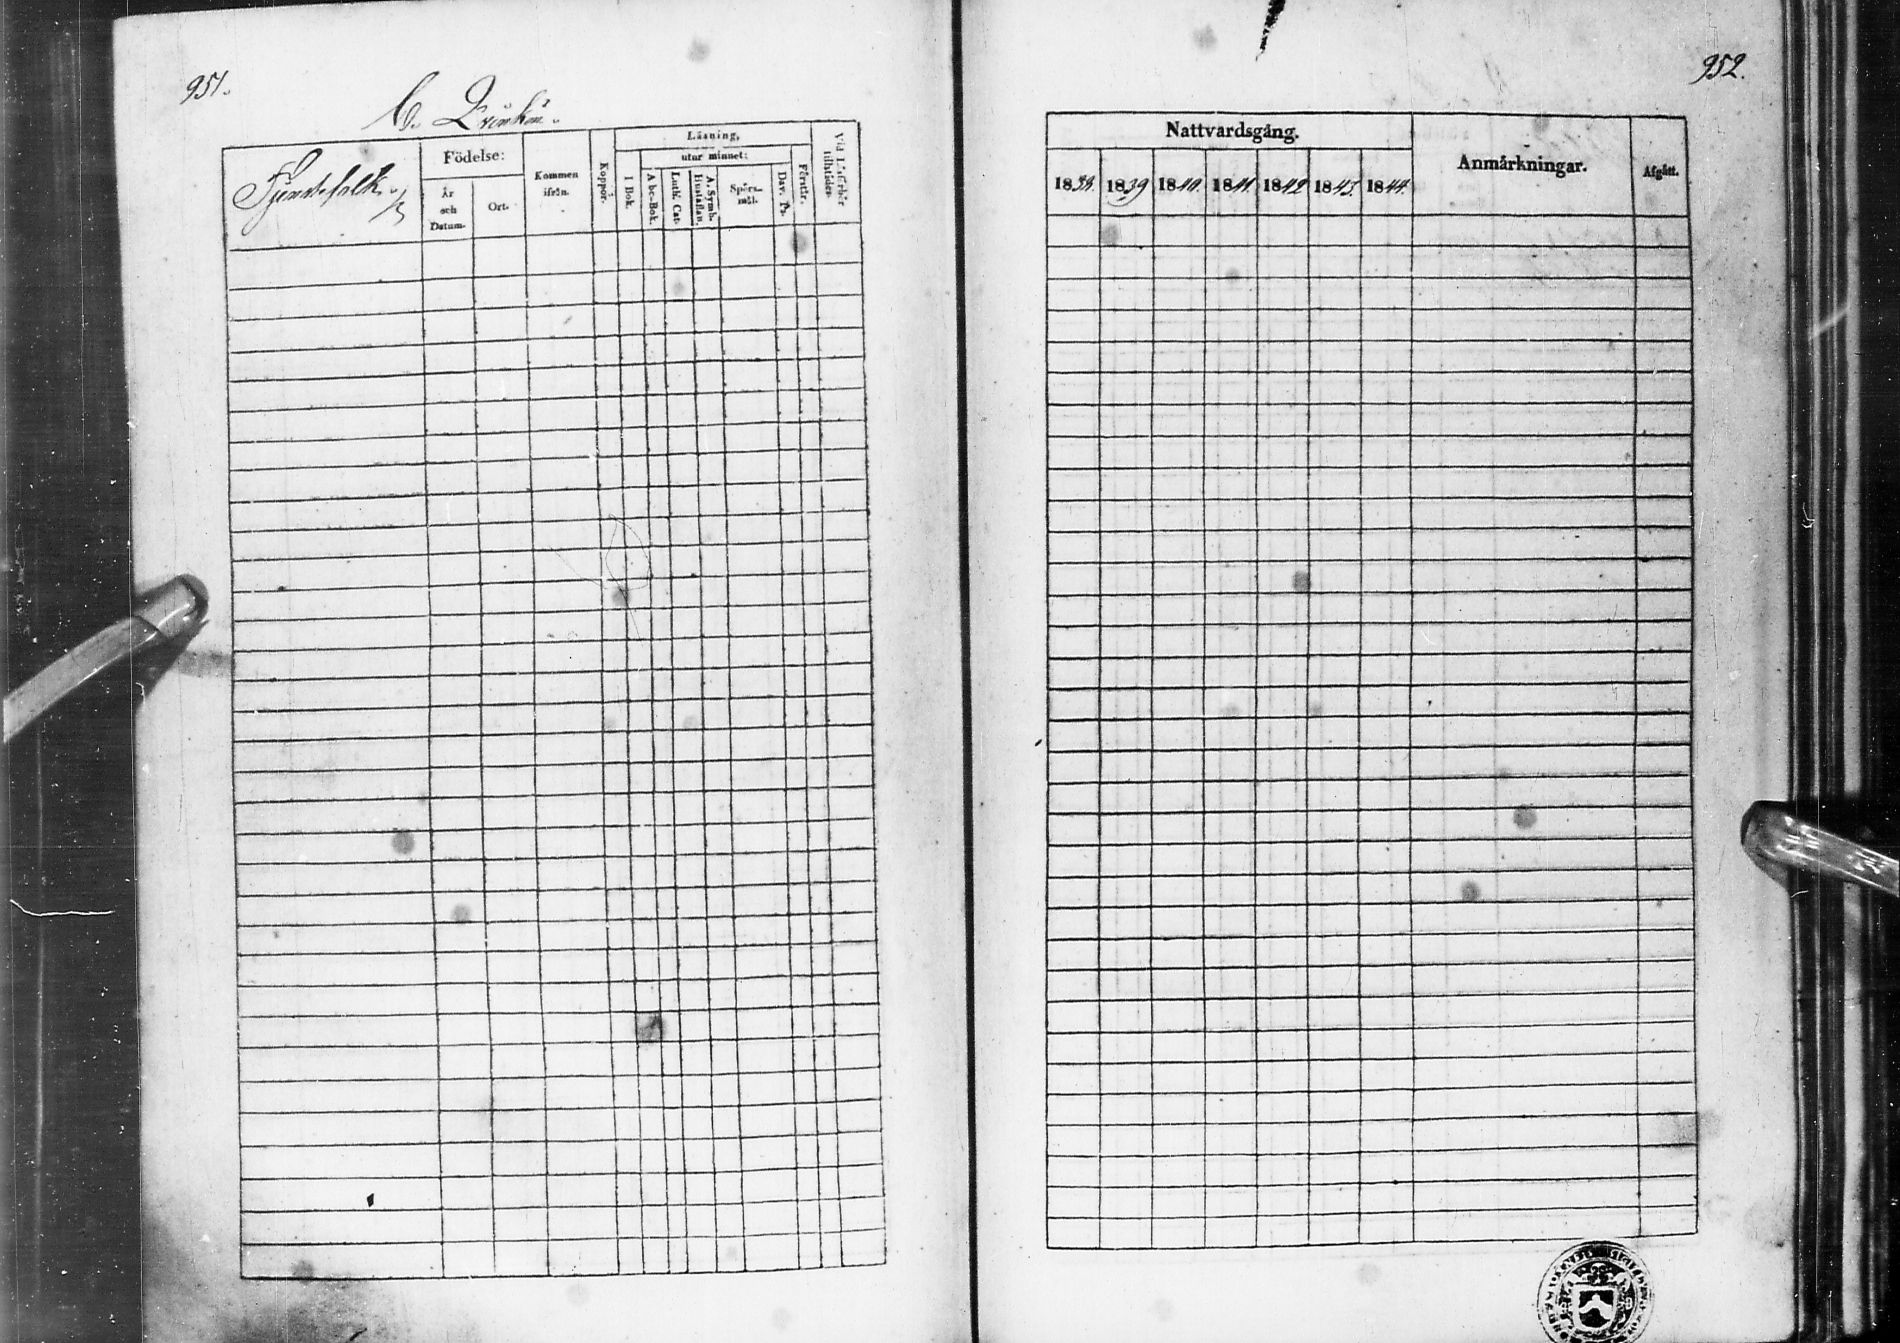 951.
C. Qvinkön.
Tjenstefolk.
Födelse:
År
och
Datum.
Ort.
Kommen
ifrån.
Koppor.
Läsning,
I Bok.
utur minnet:
A bc-Bok.
Luth. Cat.
A. Symb.
Hustaflan.
Spörs-
mål.
Dav. Ps.
Förstår.
952.
Nattvardsgång.
1838. 1839 1840. 1841. 1842 1843. 1844.
Anmärkningar.
Afgått.